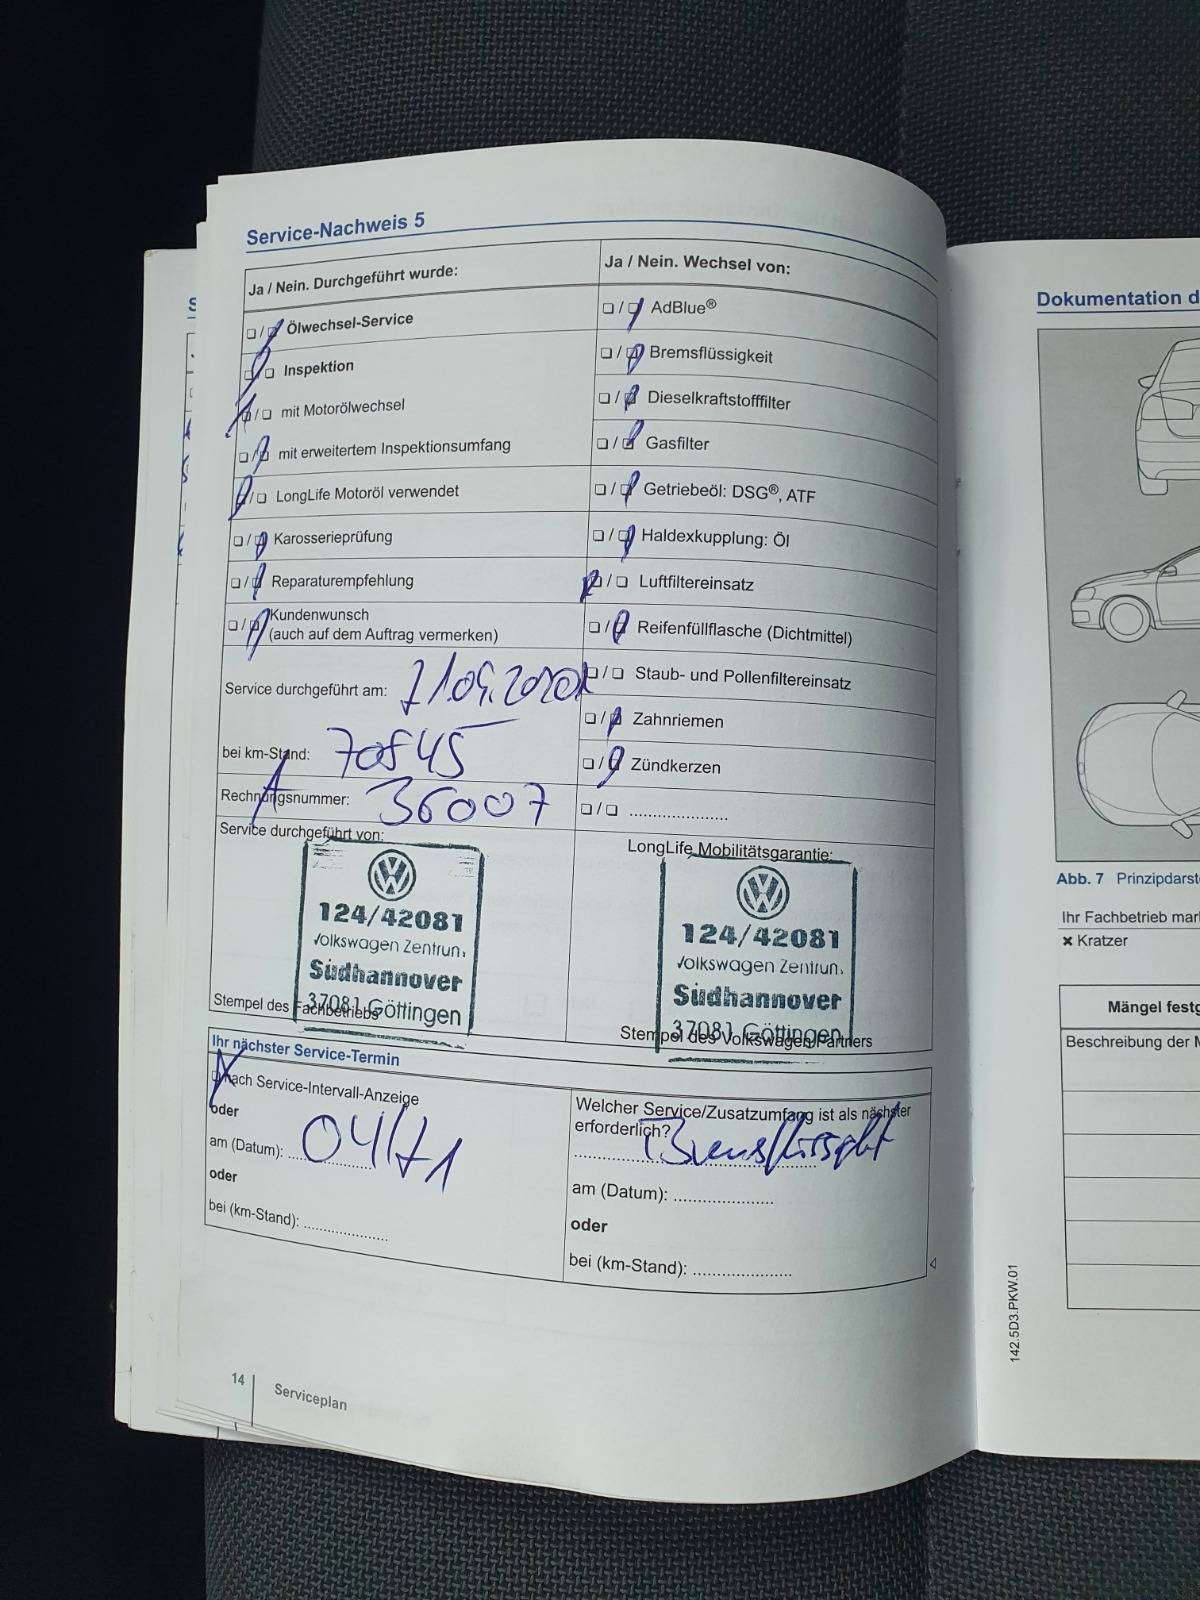 Service-Nachweis 5
Ja / Nein. Durchgeführt wurde:
❏ / ❏ Ölwechsel-Service
❏ / ❏ Inspektion
❏ / ❏ mit Motorölwechsel
❏ / ❏ mit erweitertem Inspektionsumfang
❏ / ❏ LongLife Motoröl verwendet
❏ / ❏ Karosserieprüfung
❏ / ❏ Reparaturempfehlung
❏ / ❏ Kundenwunsch
(auch auf dem Auftrag vermerken)
Service durchgeführt am:
bei km-Stand: 70545
Rechnungsnummer: 36007
Service durchgeführt von:
124/42081
Volkswagen Zentrum
Südhannover
37081 Göttingen
Stempel des Fachbetriebs
Ja / Nein. Wechsel von:
❏ / ❏ AdBlue®
❏ / ❏ Bremsflüssigkeit
❏ / ❏ Dieselkraftstofffilter
❏ / ❏ Gasfilter
❏ / ❏ Getriebeöl: DSG®, ATF
❏ / ❏ Haldexkupplung: Öl
❏ / ❏ Luftfiltereinsatz
❏ / ❏ Reifenfüllflasche (Dichtmittel)
❏ / ❏ Staub- und Pollenfiltereinsatz
❏ / ❏ Zahnriemen
❏ / ❏ Zündkerzen
❏ / ❏ ......................
LongLife Mobilitätsgarantie:
124/42081
Volkswagen Zentrum
Südhannover
37081 Göttingen
Stempel des Volkswagen Partners
Ihr nächster Service-Termin
❏ nach Service-Intervall-Anzeige
oder
am (Datum): 04/21
oder
bei (km-Stand): ..................
Welcher Service/Zusatzumfang ist als nächster
erforderlich?
am (Datum): .....................
oder
bei (km-Stand): .....................
14
Serviceplan
Dokumentation d
Abb. 7 Prinzipdarst
Ihr Fachbetrieb mar
✖ Kratzer
Mängel festg
Beschreibung der M
142.5D3.PKW.01